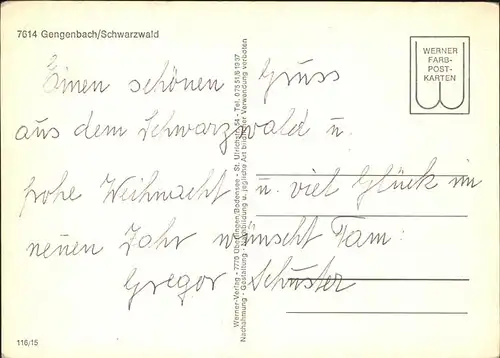 7614 Gengenbach/Schwarzwald
WERNER
FARB-
POST-
KARTEN
Einen schönen Gruss
aus dem Schwarzwald u.
frohe Weihnacht u. viel Glück im
neuen Jahr wünscht Fam:
Gregor Schuster
Werner-Verlag · 7770 Überlingen/Bodensee · St. Ulrichstr. 54 · Tel. 07551/61397
Nachahmung · Gestaltung · Nachbildung u. jegliche Art bildlicher Verwendung verboten
116/15